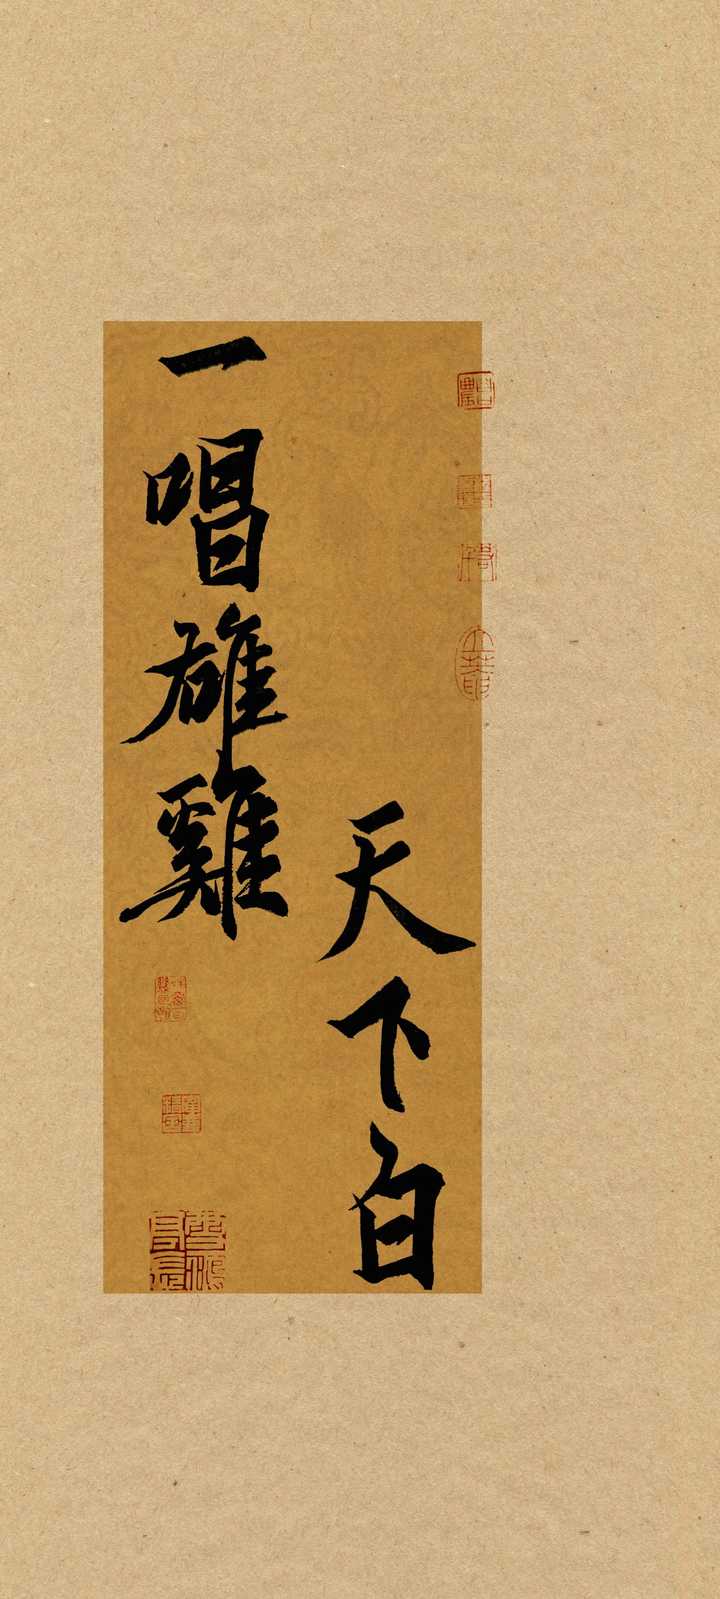 一唱雄雞
天下白